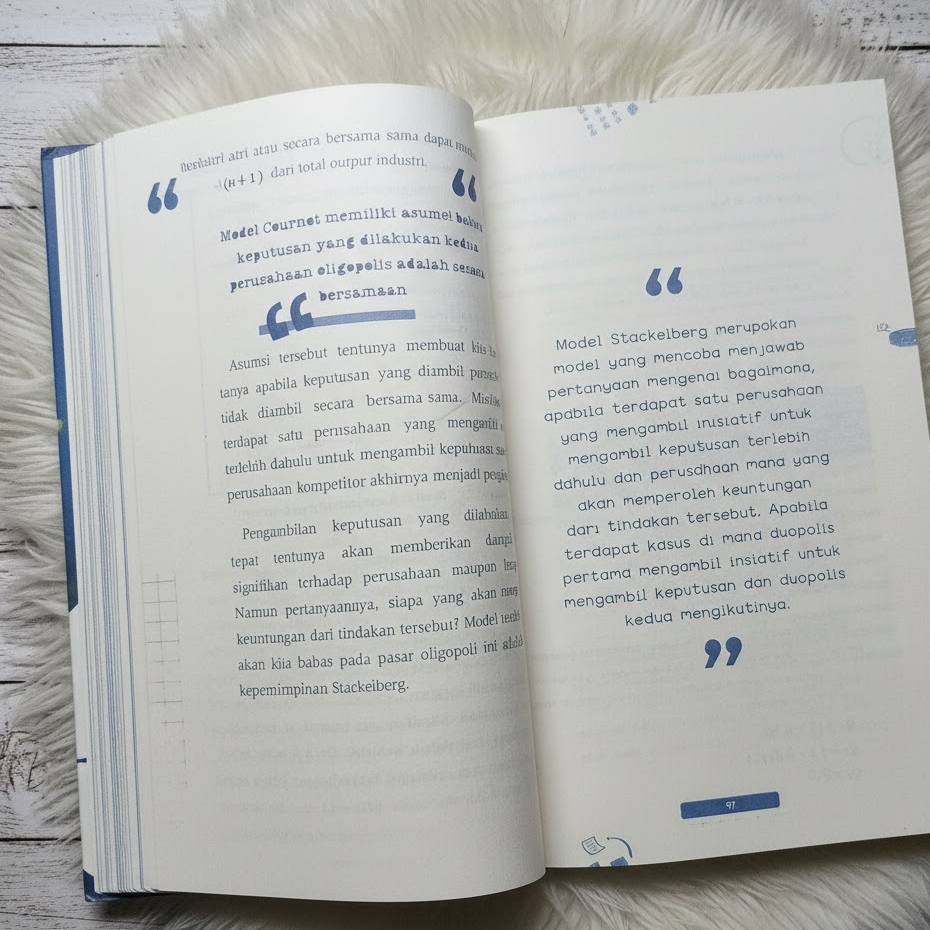 atri atau secara bersama sama dapat
(H+1) dari total outpur industri.
“ “
Model Cournot memiliki asumel
keputusan yang dilakukan kedua
perusahaan oligopolis adalah
bersamaan
“
Asumsi tersebut tentunya membuat
tanya apabila keputusan yang diambil
tidak diambil secara bersama sama.
terdapat satu yang
dahulu untuk mengambil
perusahaan kompetitor akhirnya menjadi
Pengambilan keputusan yang
tepat tentunya akan memberikan
signifikan terhadap perusahaan maupun
Namun pertanyaannya, siapa yang akan
keuntungan dari tindakan tersebut? Model
akan kiia babas pada pasar oligopoli ini
kepemimpinan Stackeiberg.
“
Model Stackelberg merupokan
model yang mencoba menjawab
pertanyaan mengenai bagaimana,
apabila terdapat satu perusahaan
yang mengambil inisiatif untuk
mengambil keputusan terlebih
dahulu dan perusdhaan mana yang
akan memperoleh keuntungan
dari tindakan tersebut. Apabila
terdapat kasus di mana duopolis
pertama mengambil insiatif untuk
mengambil keputusan dan duopolis
kedua mengikutinya.
”
97